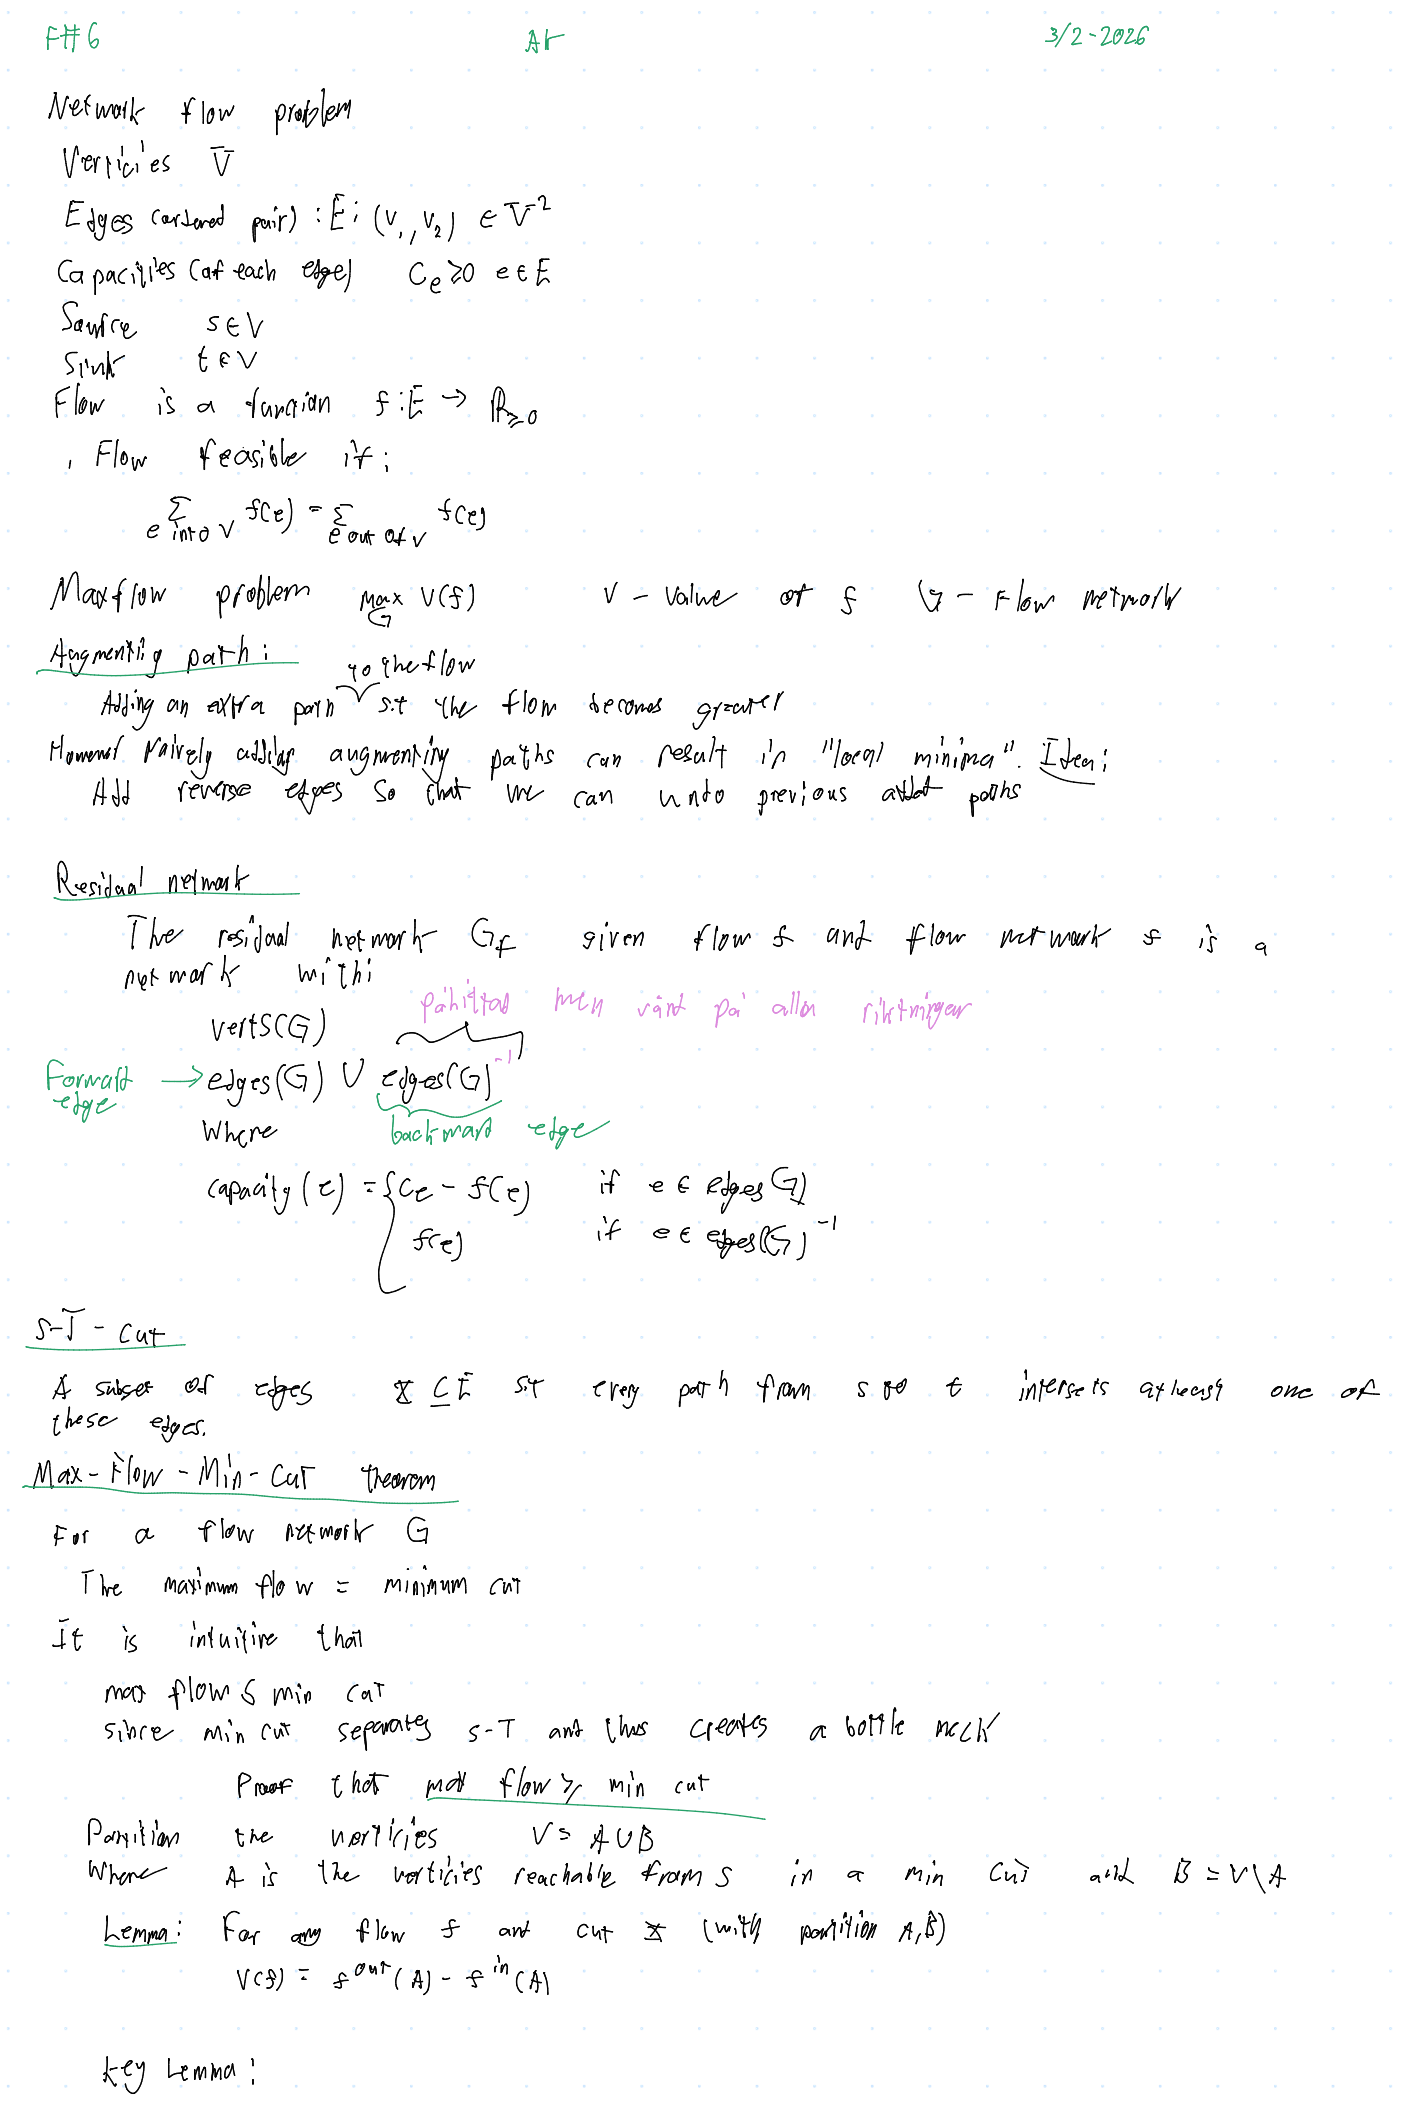 F#6 AK 3/2-2026
Network flow problem
Verticies V
Edges (ordered pair) : E : (v₁, v₂) ∈ V²
Capacities (of each edge) Cₑ ≥ 0 e ∈ E
Source s ∈ V
Sink t ∈ V
Flow is a function f : E → ℝ≥0
, Flow feasible if:
Σ e into v f(e) = Σ e out of v f(e)
Maxflow problem max G V(f) V - Value of f G - Flow network
Augmenting path:
to the flow
Adding an extra path s.t the flow becomes greater
However Naively adding augmenting paths can result in "local minima". Idea:
Add reverse edges so that we can undo previous paths
Residual network
The residual network G_f given flow f and flow network f is a
network with:
påhittad men vänt på alla riktningar
verts(G)
Forward edge → edges(G) ∪ edges(G)⁻¹
Where backward edge
capacity(e) = { Cₑ - f(e) if e ∈ edges(G)
f(e) if e ∈ edges(G)⁻¹
S-T - cut
A subset of edges X ⊆ E s.t every path from s to t intersets atleast one of
these edges.
Max-Flow-Min-Cut theorem
For a flow network G
The maximum flow = minimum cut
It is intuitive that
max flow ≤ min cut
since min cut separates s-T and thus creates a bottle neck
Proof that max flow ≥ min cut
Partition the verticies V = A ∪ B
Where A is the verticies reachable from s in a min cut and B = V \ A
Lemma: For any flow f and cut X (with partition A,B)
V(f) = f^out(A) - f^in(A)
Key Lemma: